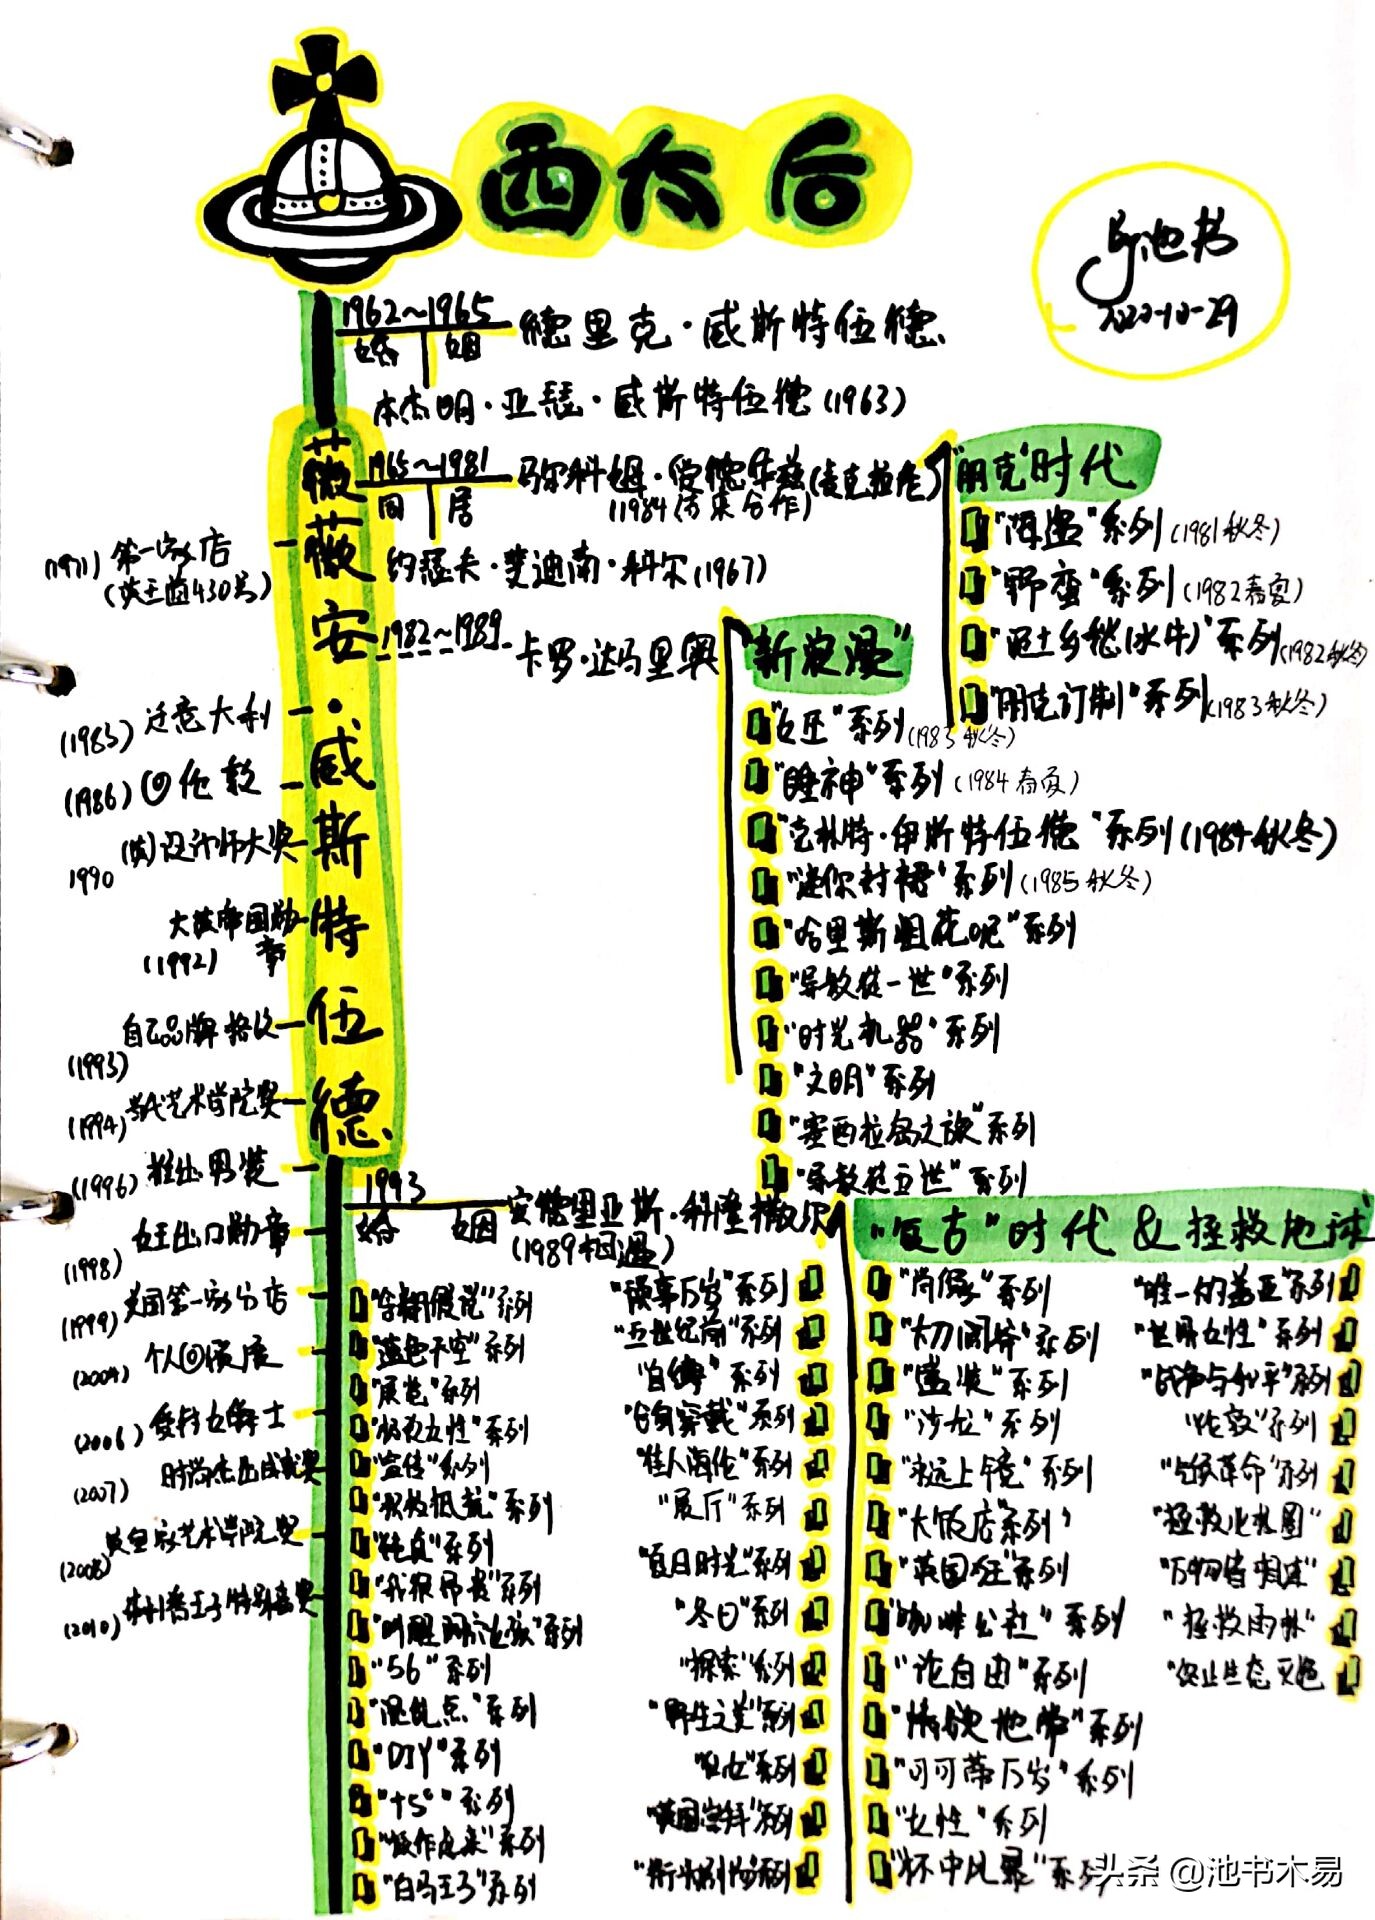 西太后
池书
2020-10-29
1962~1965
婚姻
德里克·威斯特伍德
本杰明·亚瑟·威斯特伍德(1963)
薇薇安·威斯特伍德
1965~1981
同居
马尔科姆·爱德华兹(麦克拉伦)
(1984结束合作)
约瑟夫·斐迪南·科尔(1967)
1982~1989
卡罗·达马里奥
(1971)第一家店
(英王道430号)
(1983)迁意大利
(1986)回伦敦
1990(英)设计师大奖
大英帝国勋章
(1992)
自己品牌格纹
(1993)
(1994)当代艺术学院奖
(1996)推出男装
(1998)女王出口勋章
(1999)美国第一家分店
(2004)个人回顾展
(2006)受封女爵士
(2007)时尚杰出成就奖
(2008)英皇家艺术学院奖
(2010)查尔斯王子特别嘉奖
"朋克"时代
"海盗"系列(1981秋冬)
"野蛮"系列(1982春夏)
"泥土乡愁(水牛)"系列(1982秋冬)
"朋克订制"系列(1983秋冬)
"新浪漫"
"女巫"系列(1983秋冬)
"睡神"系列(1984春夏)
"克朴特·伊斯特伍德"系列(1984秋冬)
"迷你衬裙"系列(1985秋冬)
"哈里斯粗花呢"系列
"异教徒一世"系列
"时光机器"系列
"文明"系列
"塞西拉岛之旅"系列
"异教徒五世"系列
1993
婚姻
安德里亚斯·科隆撒尔
(1989相遇)
"蓝色天空"系列
"展览"系列
"极致女性"系列
"宣传"系列
"积极抵抗"系列
"纯真"系列
"我很昂贵"系列
"56"系列
"混乱点"系列
"DIY"系列
"+5°"系列
"白马王子"系列
"五世纪前"系列
"自缚"系列
"佳人海伦"系列
"展厅"系列
"夏日时光"系列
"冬日"系列
"探索"系列
"野生之美"系列
"英国崇拜"系列
"复古"时代&拯救地球
"肖像"系列
"大刀阔斧"系列
"盛装"系列
"沙龙"系列
"永远上镜"系列
"大饭店"系列
"英国狂"系列
"咖啡公社"系列
"论自由"系列
"情欲地带"系列
"可可蒂万岁"系列
"女性"系列
"杯中风暴"系列
"唯一的盖亚"系列
"世界女性"系列
"战争与和平"系列
"伦敦"系列
"气候革命"系列
"万物皆相连"
"拯救雨林"
"终止生态灭绝"
头条 @池书木易